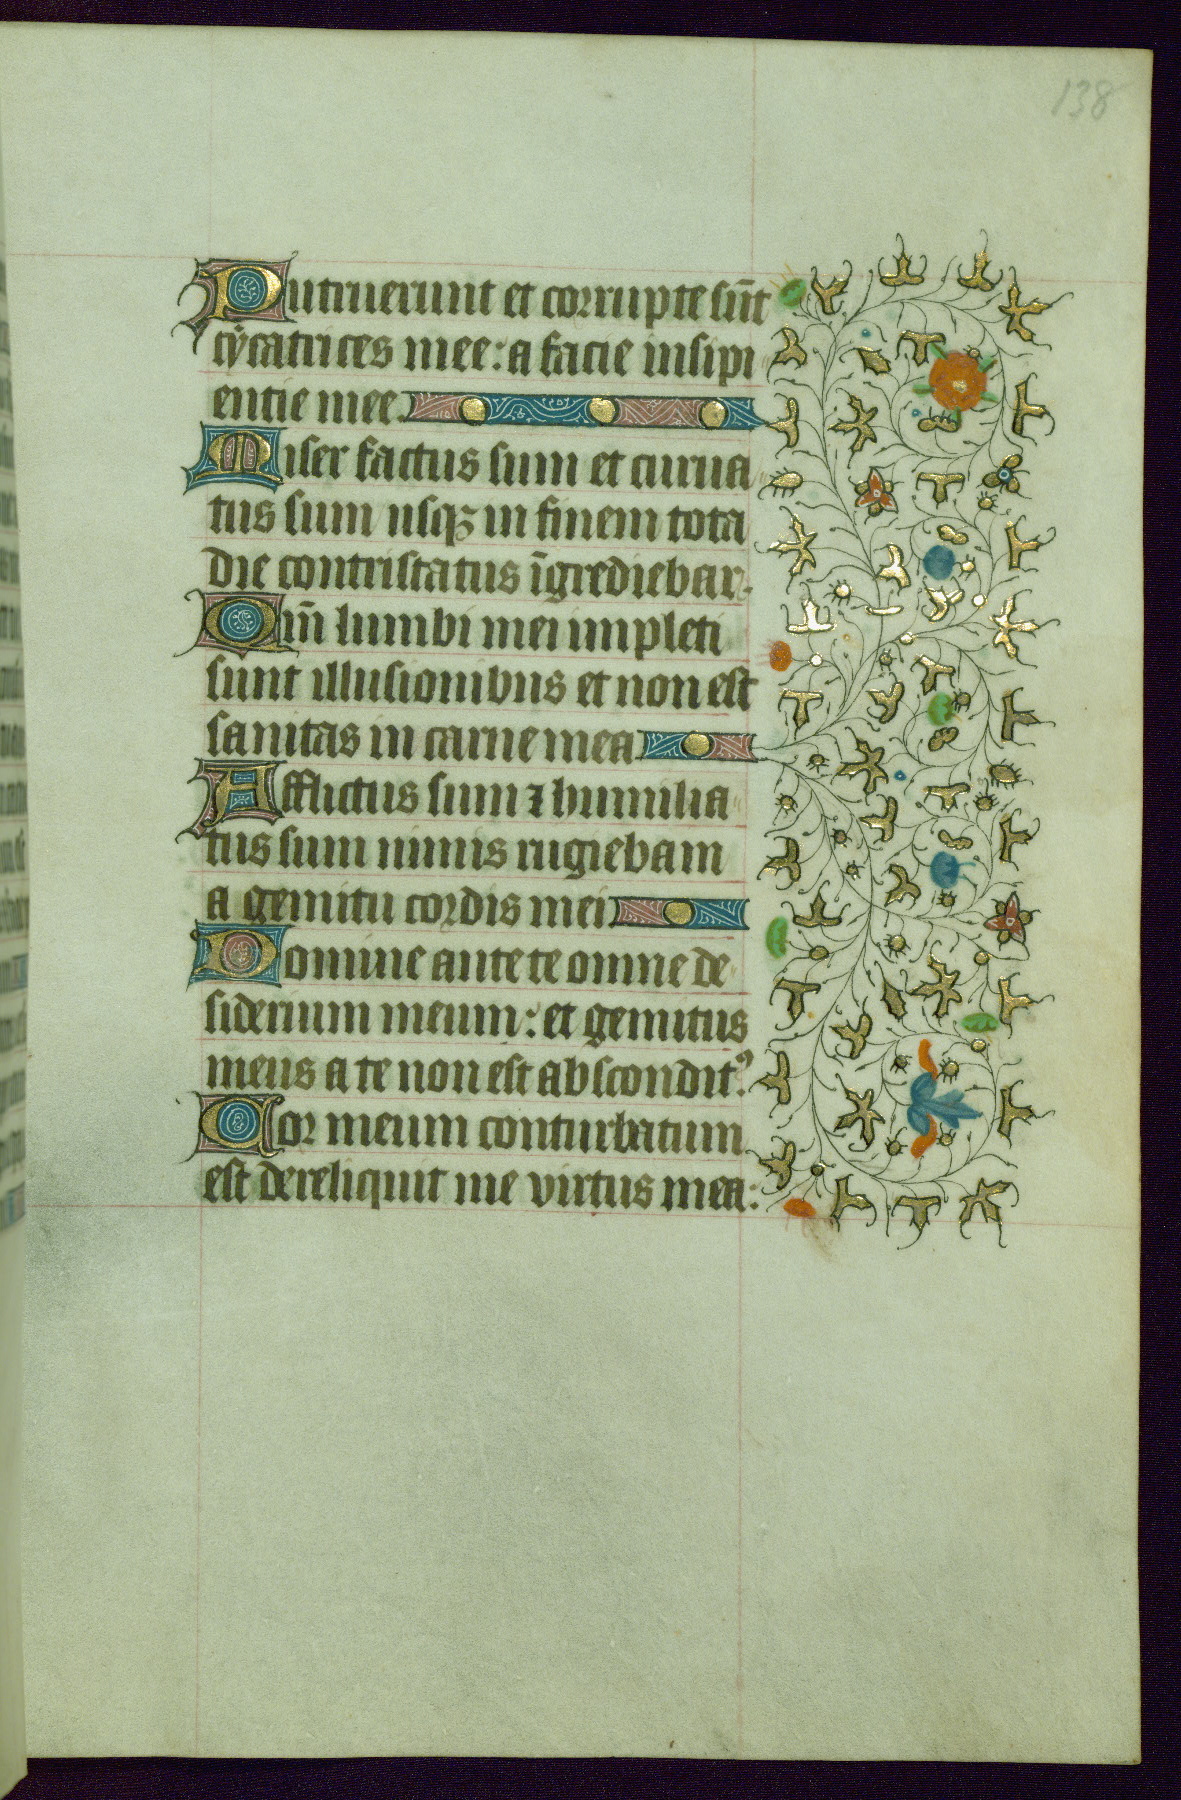 138
Putruerunt et corrupte sūt
cẏcatrices mee: a facie insipi
entie mee.
Miser factus sum et curua
tus sum usqꝫ in finem tota
die contristatus īgrediebar.
Qm̄ lumbi mei impleti
sunt illusionibus et non est
sanitas in carne mea
Afflictus sum ⁊ humilia
tus sum nimis rugiebam
a gemitu cordis mei
Domine ante te omne de
siderium meum: et gemitus
meus a te non est absconditꝰ.
Cor meum conturbatum
est dereliquit me virtus mea: